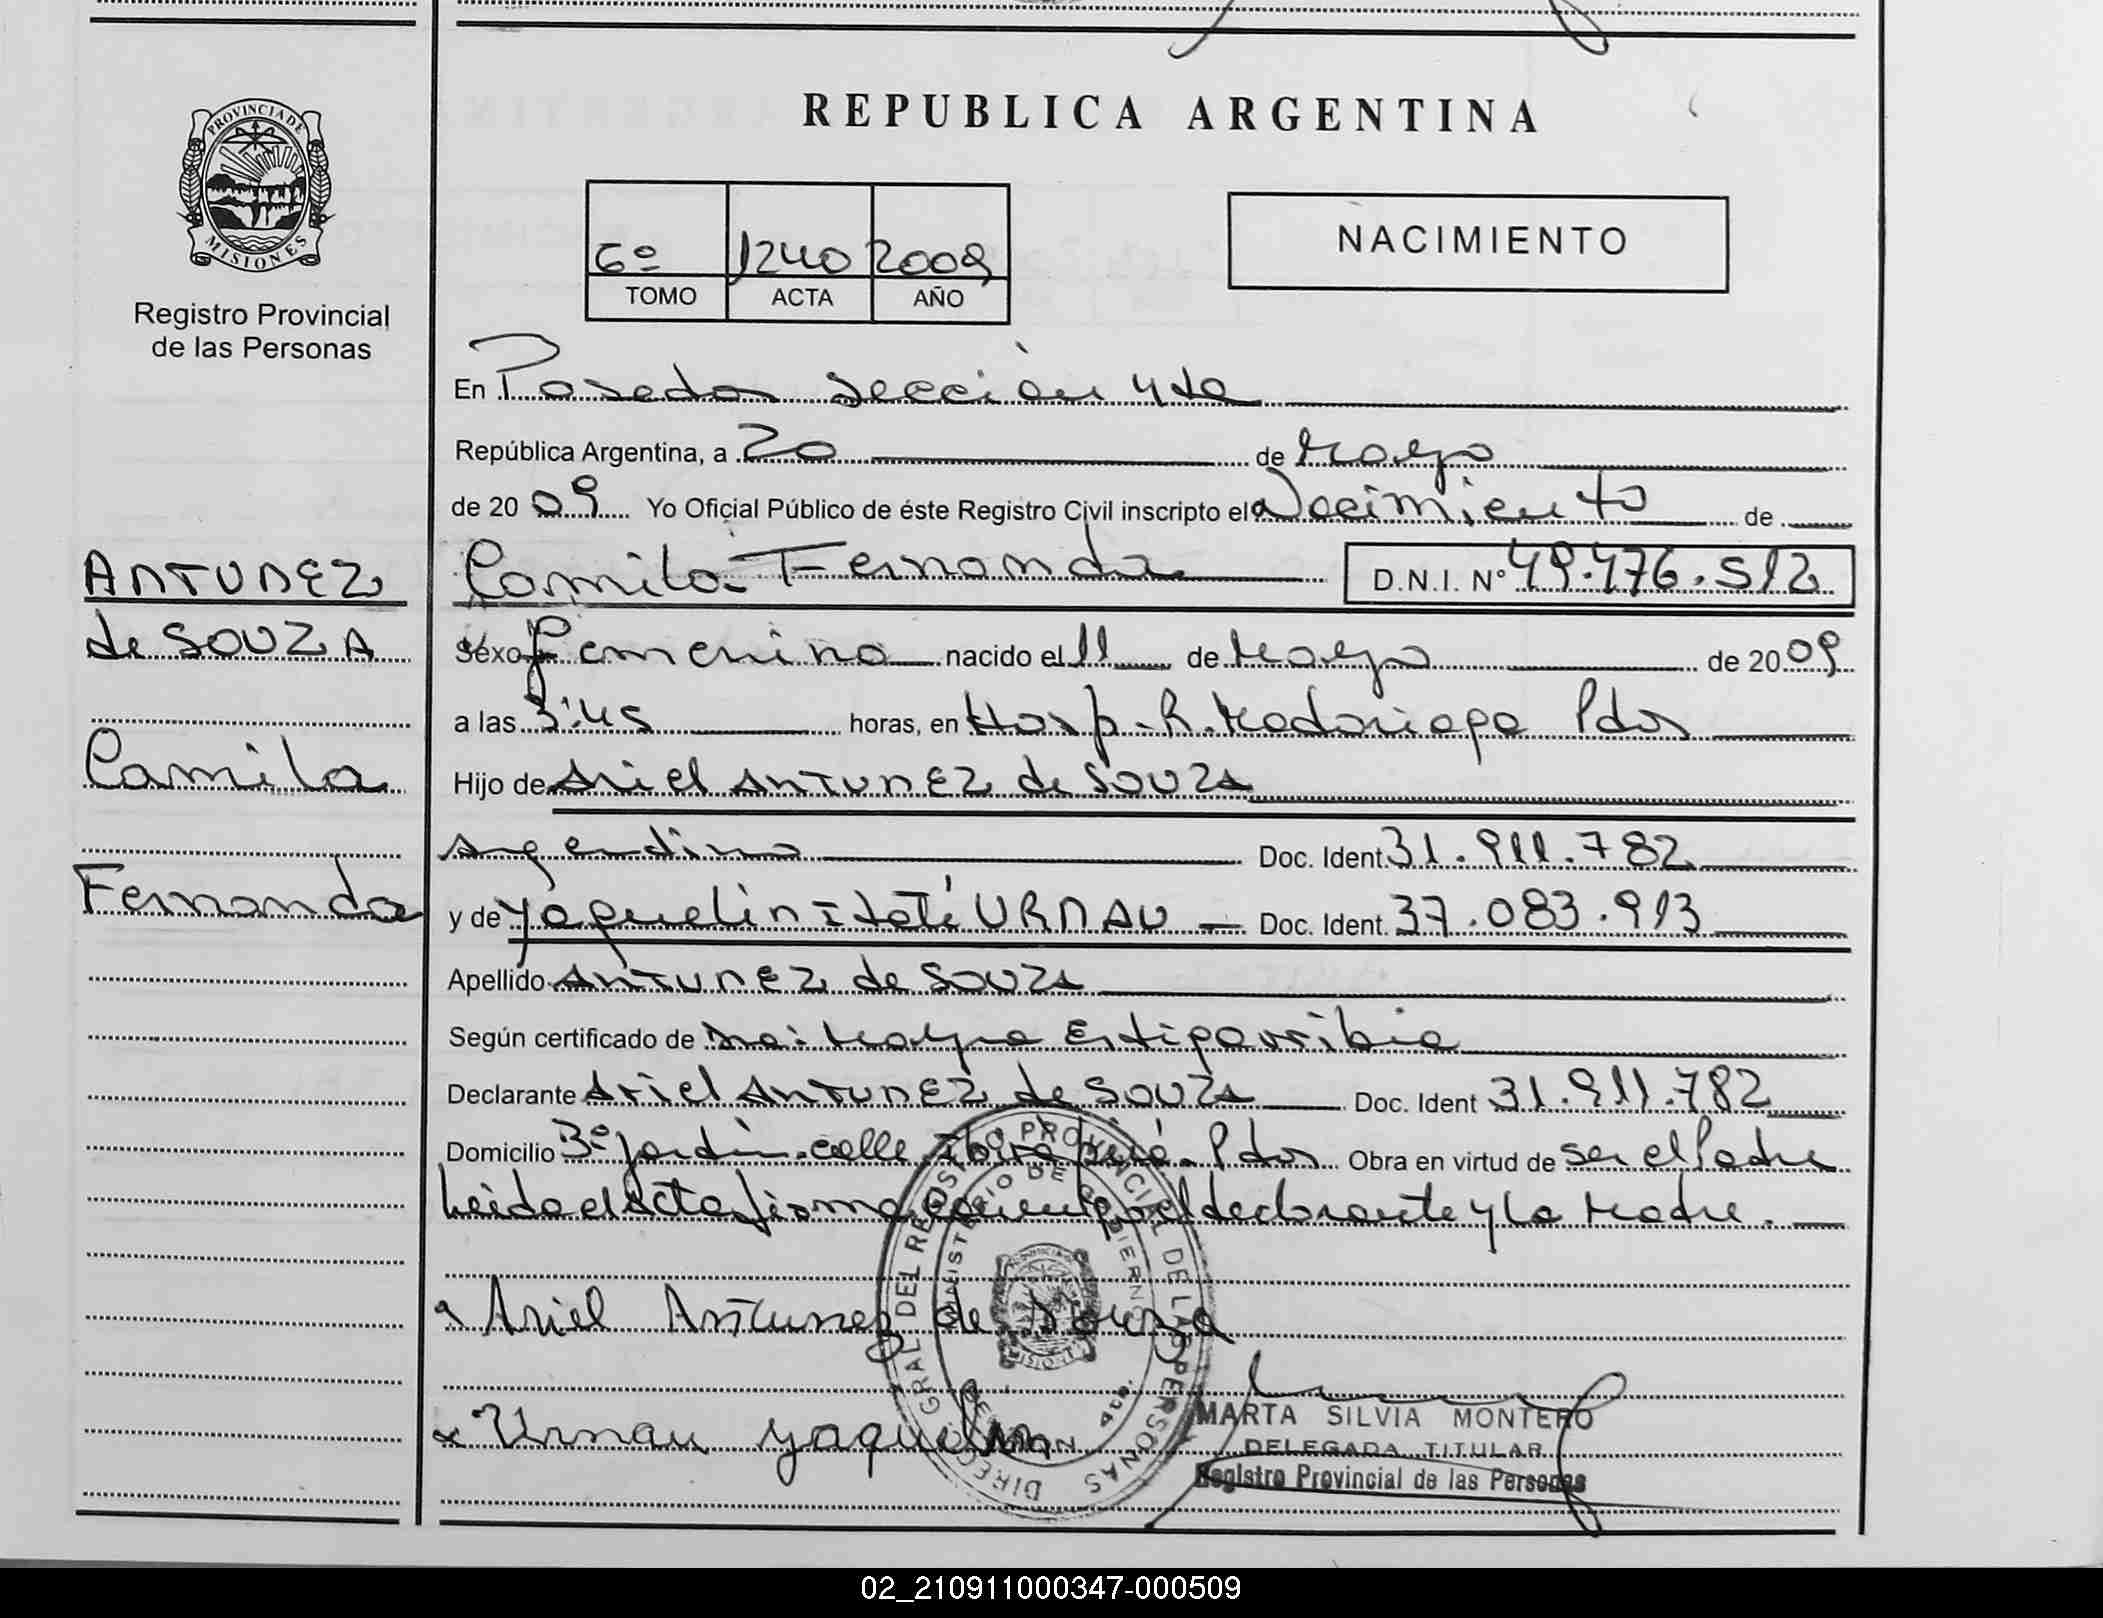 REPUBLICA ARGENTINA
PROVINCIA DE
MISIONES
Registro Provincial
de las Personas
6º 1240 2009
TOMO ACTA AÑO
NACIMIENTO
En Posadas sección 4ta
República Argentina, a 20 de Mayo
de 2009 Yo Oficial Público de éste Registro Civil inscripto el Nacimiento de
Camila Fernanda D.N.I. Nº 49.476.512
Sexo femenino nacido el 11 de Mayo de 2009
a las 3:45 horas, en Hosp. R. Madariaga Pdas
Hijo de Ariel ANTUNEZ de SOUZA
argentino Doc. Ident. 31.911.782
y de Yaquelin Itatí URNAU Doc. Ident. 37.083.913
Apellido ANTUNEZ de SOUZA
Según certificado de Mayra Estigarribia
Declarante Ariel ANTUNEZ de SOUZA Doc. Ident 31.911.782
Domicilio 3º Jardín calle Pdas Obra en virtud de ser el Padre
Leída el Acta firma el declarante y la Madre.
Ariel Antunez de Souza
Urnau Yaquelin
ANTUNEZ
de SOUZA
Camila
Fernanda
DIREC. GRAL. DEL REGISTRO PROVINCIAL DE LAS PERSONAS
MINISTERIO DE GOBIERNO
MARTA SILVIA MONTERO
DELEGADA TITULAR
Registro Provincial de las Personas
02_210911000347-000509